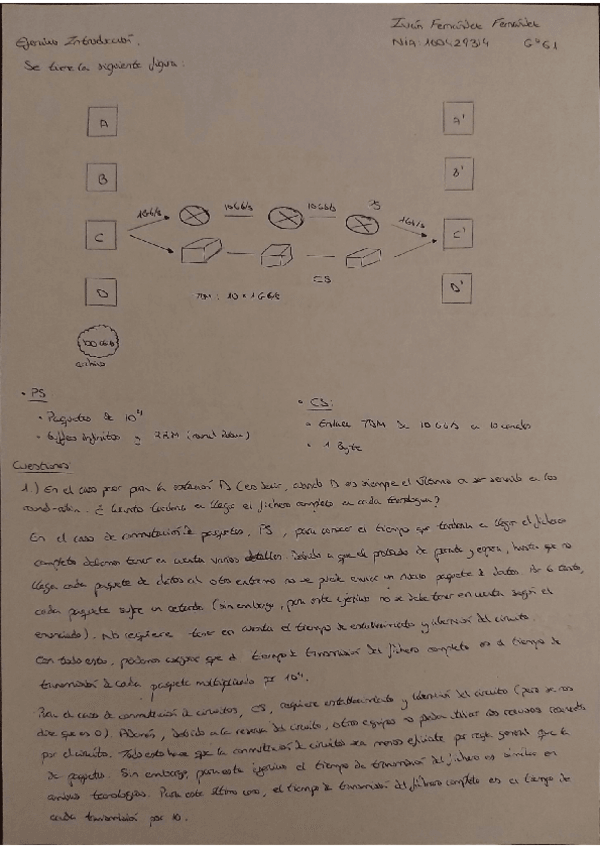 Iván Fernández Fernández
Ejercicio Introducción.
NIA: 100429314 Gº61
Se tiene la siguiente figura:
A A'
B B'
1Gb/s 10Gb/s 10Gb/s PS 1Gb/s
C C'
CS
D TDM: 10 x 1Gb/s D'
100 Gb
archivo
• PS
• CS:
• Paquetes de 10⁴
• Enlace TDM de 10 Gb/s en 10 canales
• Buffers infinitos y RRM (round Robin)
• 1 Byte
Cuestiones
1.) En el caso peor para la estación D (es decir, cuando D es siempre el último a ser servido en los
round-robin. ¿Cuánto tardaría en llegar el fichero completo en cada tecnología?
En el caso de conmutación de paquetes, PS, para conocer el tiempo que tardará en llegar el fichero
completo debemos tener en cuenta varios detalles. Debido a que el protocolo de parada y espera, hasta que no
llega cada paquete de datos al otro extremo no se puede enviar un nuevo paquete de datos. Por lo tanto,
cada paquete sufre un retardo (sin embargo, para este ejercicio no se debe tener en cuenta según el
enunciado). No requiere tener en cuenta el tiempo de establecimiento y liberación del circuito.
Con todo esto, podemos asegurar que el tiempo de transmisión del fichero completo es el tiempo de
transmisión de cada paquete multiplicado por 10⁴.
Para el caso de conmutación de circuitos, CS, requiere establecimiento y liberación del circuito (pero se nos
dice que es 0). Además, debido a la reserva del circuito, otros equipos no pueden utilizar los recursos reservados
por el circuito. Todo esto hace que la conmutación de circuitos sea menos eficiente por regla general que la
de paquetes. Sin embargo, para este ejercicio el tiempo de transmisión del fichero es similar en
ambas tecnologías. Para este último caso, el tiempo de transmisión del fichero completo es el tiempo de
cada transmisión por 10.